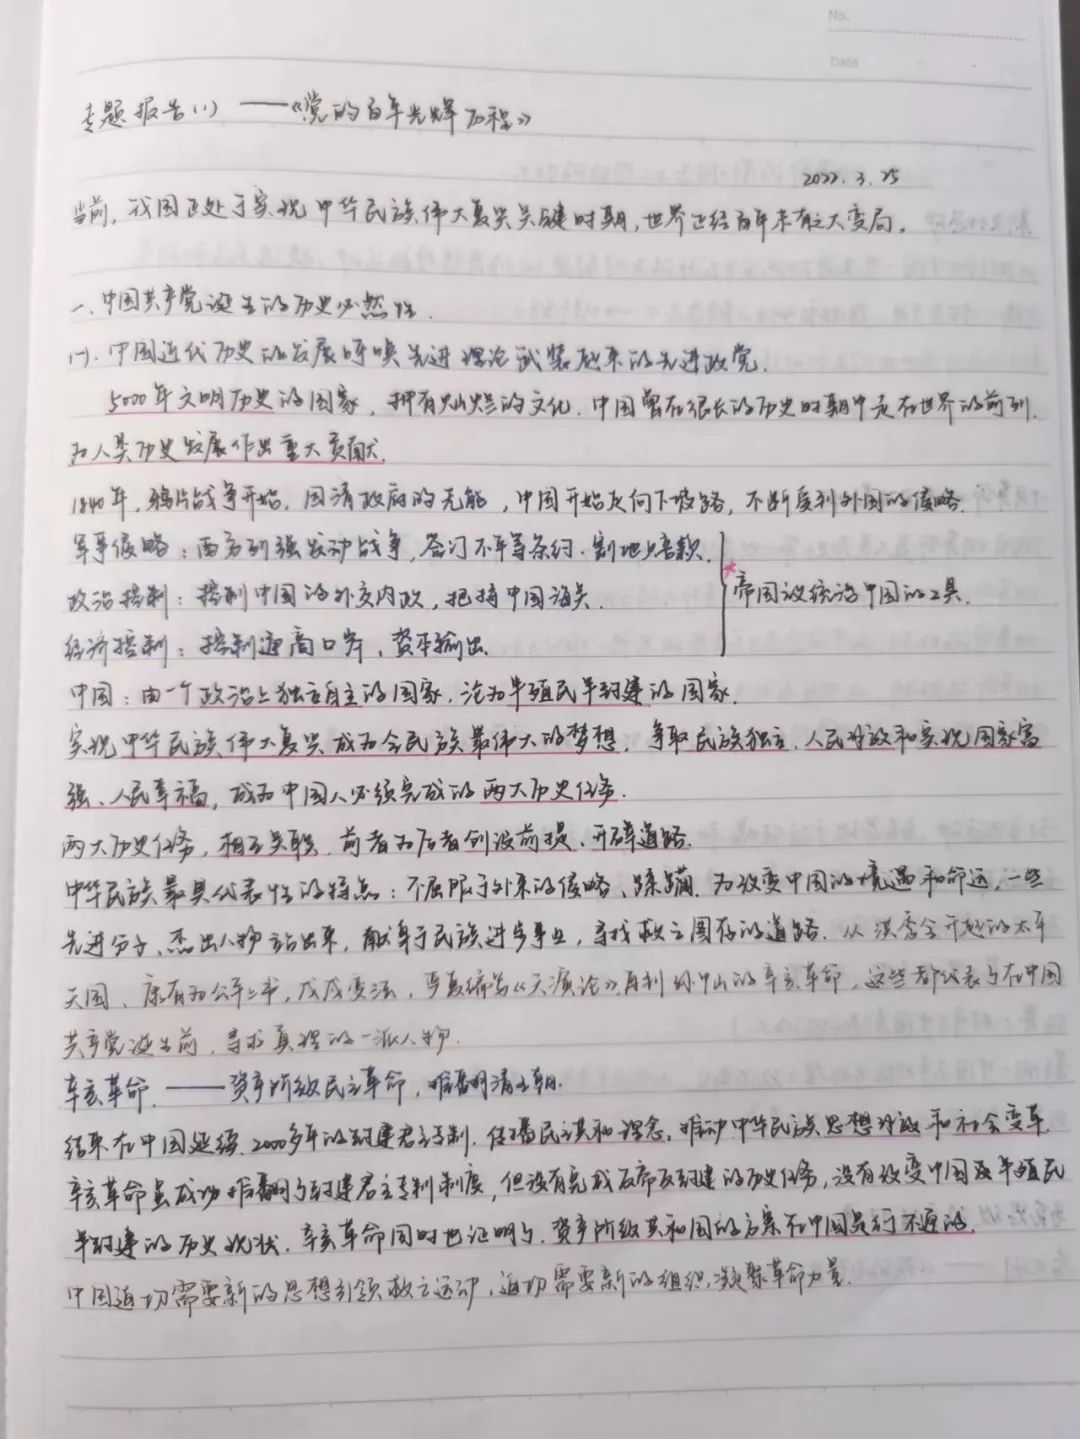 No.
Date
专题报告(1) ——《党的百年光辉历程》
2022.3.25
当前,我国正处于实现中华民族伟大复兴关键时期,世界正经百年未有之大变局。
一、中国共产党诞生的历史必然性.
(一).中国近代历史的发展呼唤先进理论武装起来的先进政党.
5000年文明历史的国家,拥有灿烂的文化.中国曾在很长的历史时期中走在世界的前列.
为人类历史发展作出重大贡献.
1840年,鸦片战争开始.因清政府的无能,中国开始走向下坡路,不断受到外国的侵略.
军事侵略:西方列强发动战争,签订不平等条约.割地赔款.
政治控制:控制中国的外交内政,把持中国海关.
帝国被统治中国的工具.
经济控制:控制通商口岸,资本输出.
中国:由一个政治上独立自主的国家,沦为半殖民半封建的国家.
实现中华民族伟大复兴成为全民族最伟大的梦想,争取民族独立、人民解放和实现国家富
强、人民幸福,成为中国人必须完成的两大历史任务.
两大历史任务,相互关联.前者为后者创设前提、开辟道路.
中华民族最具代表性的特点:不屈服于外来的侵略、蹂躏.为改变中国的境遇和命运,一些
先进分子、杰出人物站出来,献身于民族进步事业,寻找救亡图存的道路.从洪秀全开起的太平
天国、康有为公车上书,戊戌变法,严复编写《天演论》,再到孙中山的辛亥革命,这些都代表了在中国
共产党诞生前,寻求真理的一派人物.
辛亥革命.——资产阶级民主革命,推翻清王朝.
结束在中国延续2000多年的封建君主专制.传播民主共和理念,推动中华民族思想解放和社会变革.
辛亥革命虽成功推翻了封建君主专制制度,但没有完成反帝反封建的历史任务,没有改变中国及半殖民
半封建的历史现状.辛亥革命同时也证明了,资产阶级共和国的方案在中国是行不通的.
中国迫切需要新的思想引领救亡运动,迫切需要新的组织,凝聚革命力量.